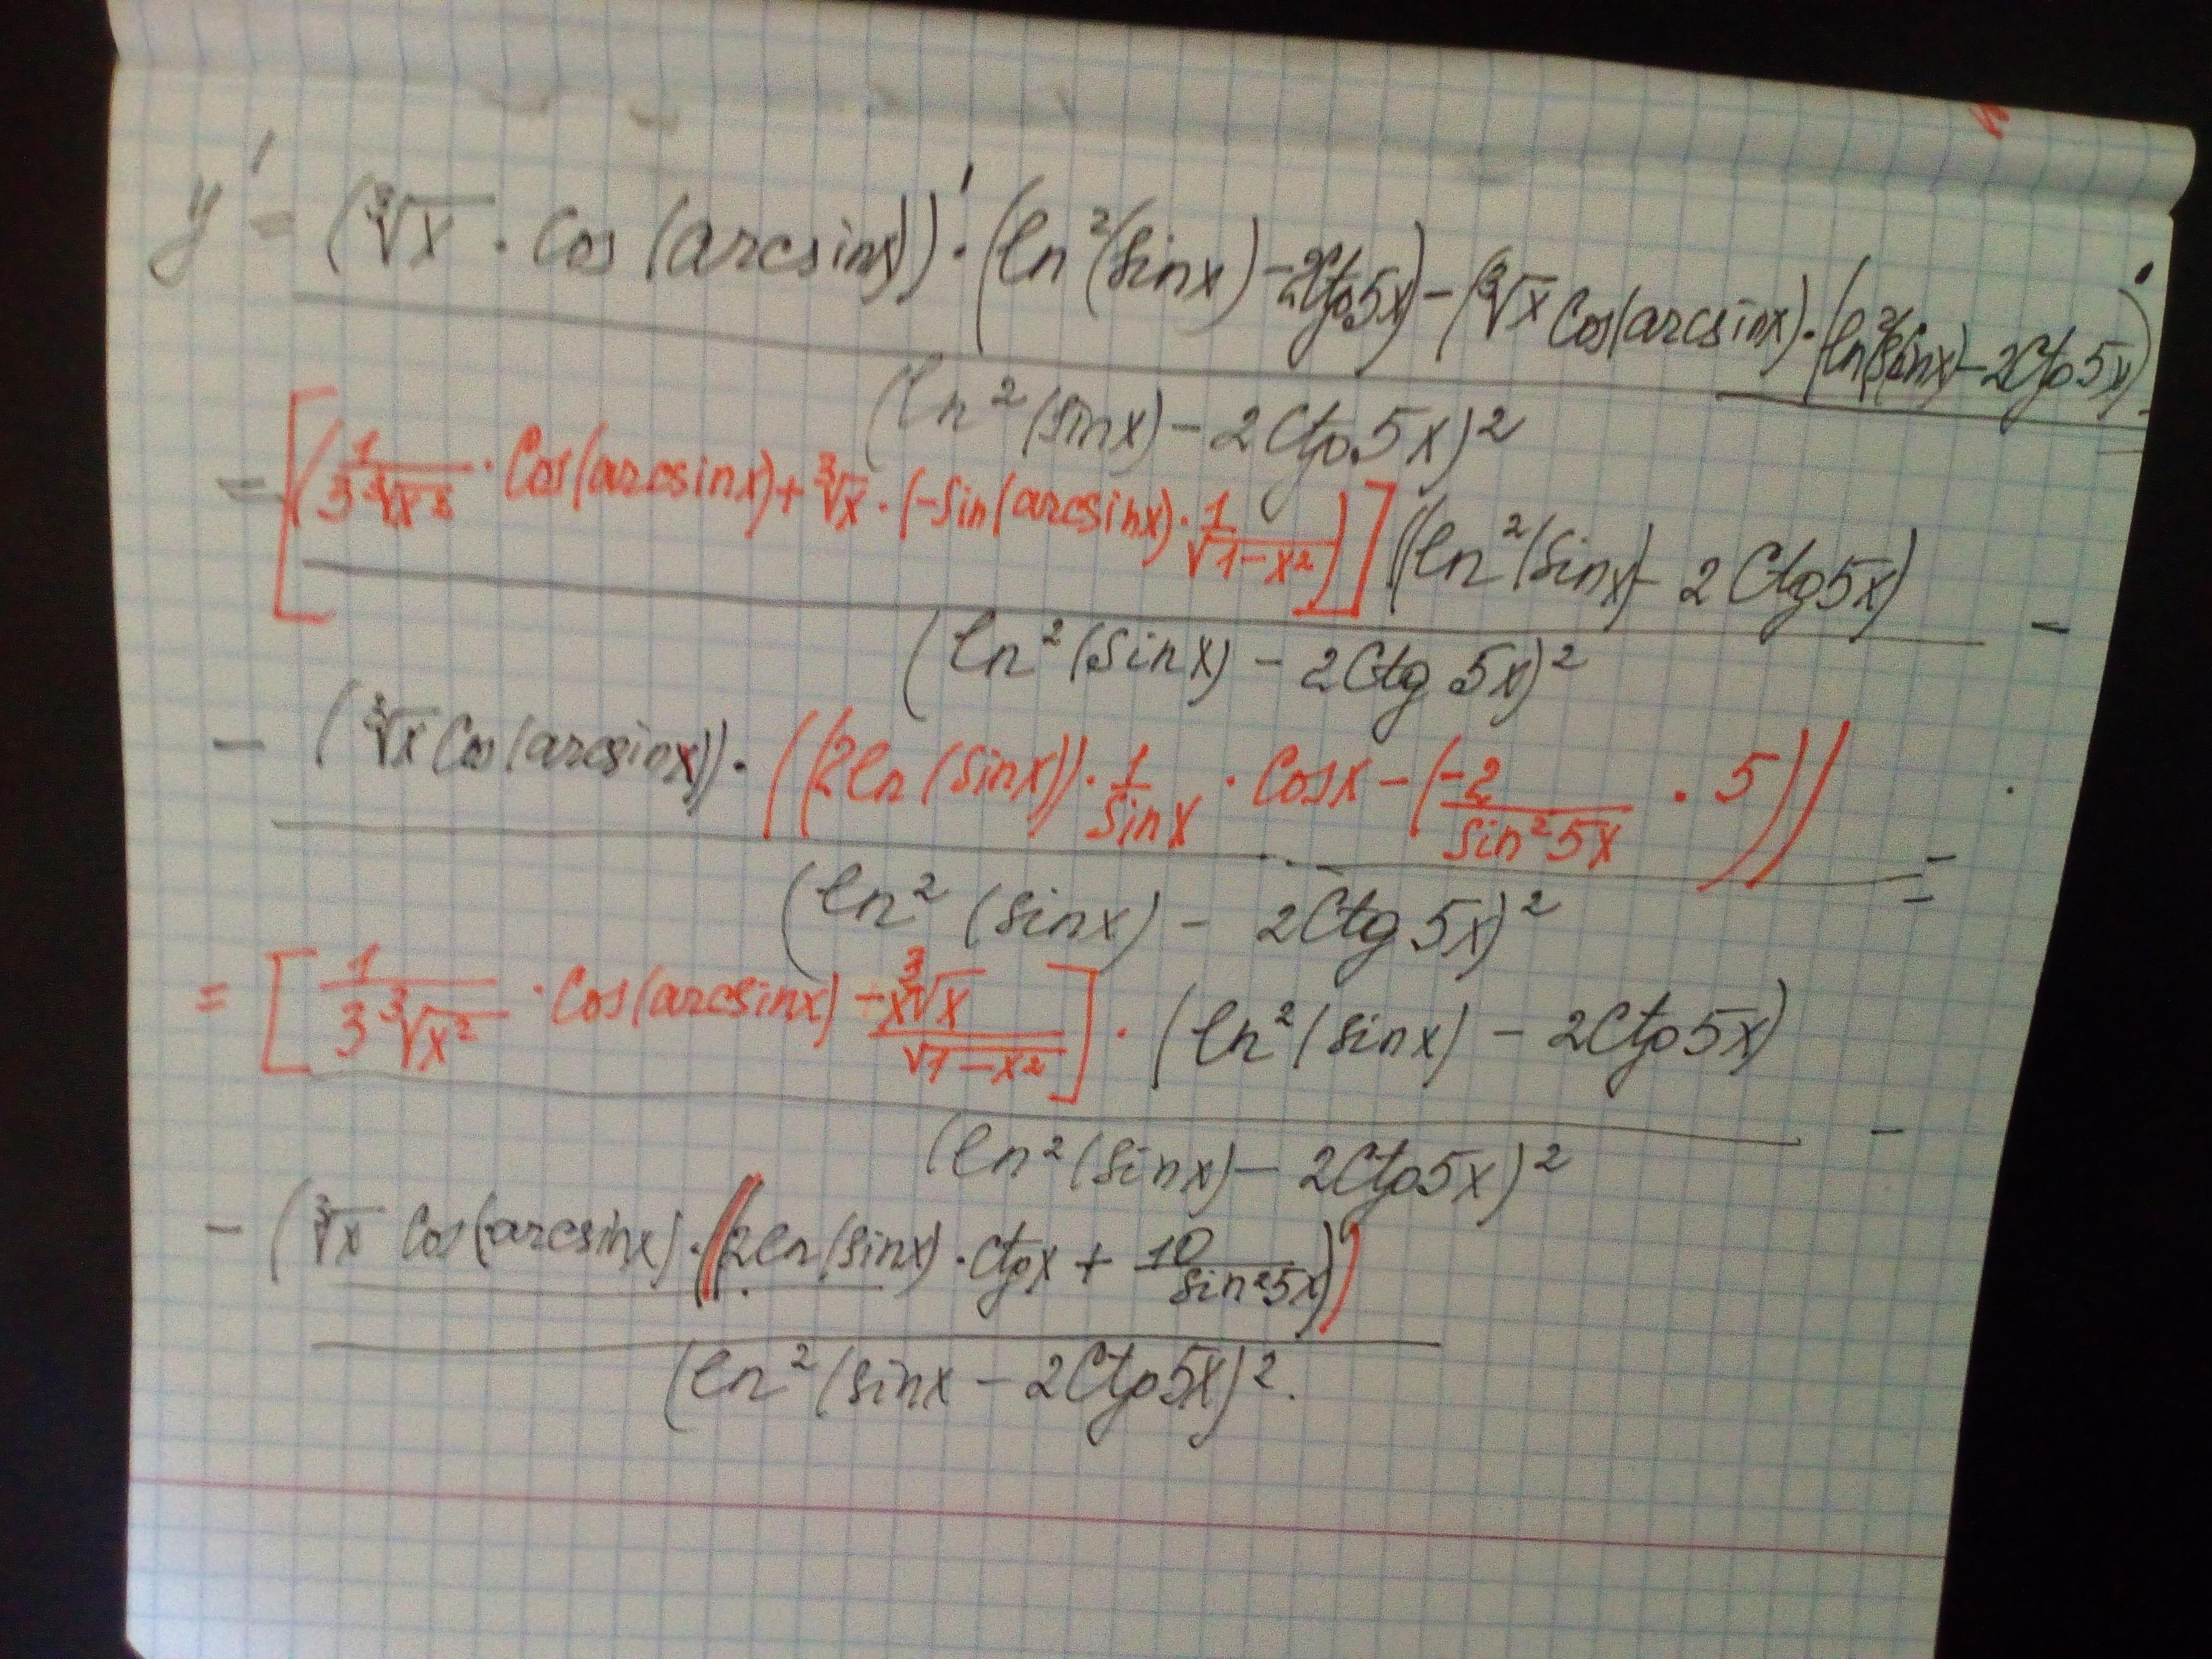 y' = (∛x · Cos(arcsinx))' · (ln²(sinx) - 2Ctg5x) - (∛x Cos(arcsinx) · (ln²(sinx) - 2Ctg5x)'
(ln²(sinx) - 2Ctg5x)²
= [(1/(3∛x²) · Cos(arcsinx) + ∛x · (-sin(arcsinx) · 1/√(1-x²))] (ln²(sinx) - 2Ctg5x) -
(ln²(sinx) - 2Ctg5x)²
- (∛x Cos(arcsinx)) · ((2ln(sinx)) · 1/sinx · Cosx - (-2/sin²5x · 5)) =
(ln²(sinx) - 2Ctg5x)²
= [1/(3∛x²) · Cos(arcsinx) - x∛x/√(1-x²)] · (ln²(sinx) - 2Ctg5x) -
(ln²(sinx) - 2Ctg5x)²
- (∛x Cos(arcsinx) · (2ln(sinx) · ctgx + 10/sin²5x))
(ln²(sinx - 2Ctg5x)².